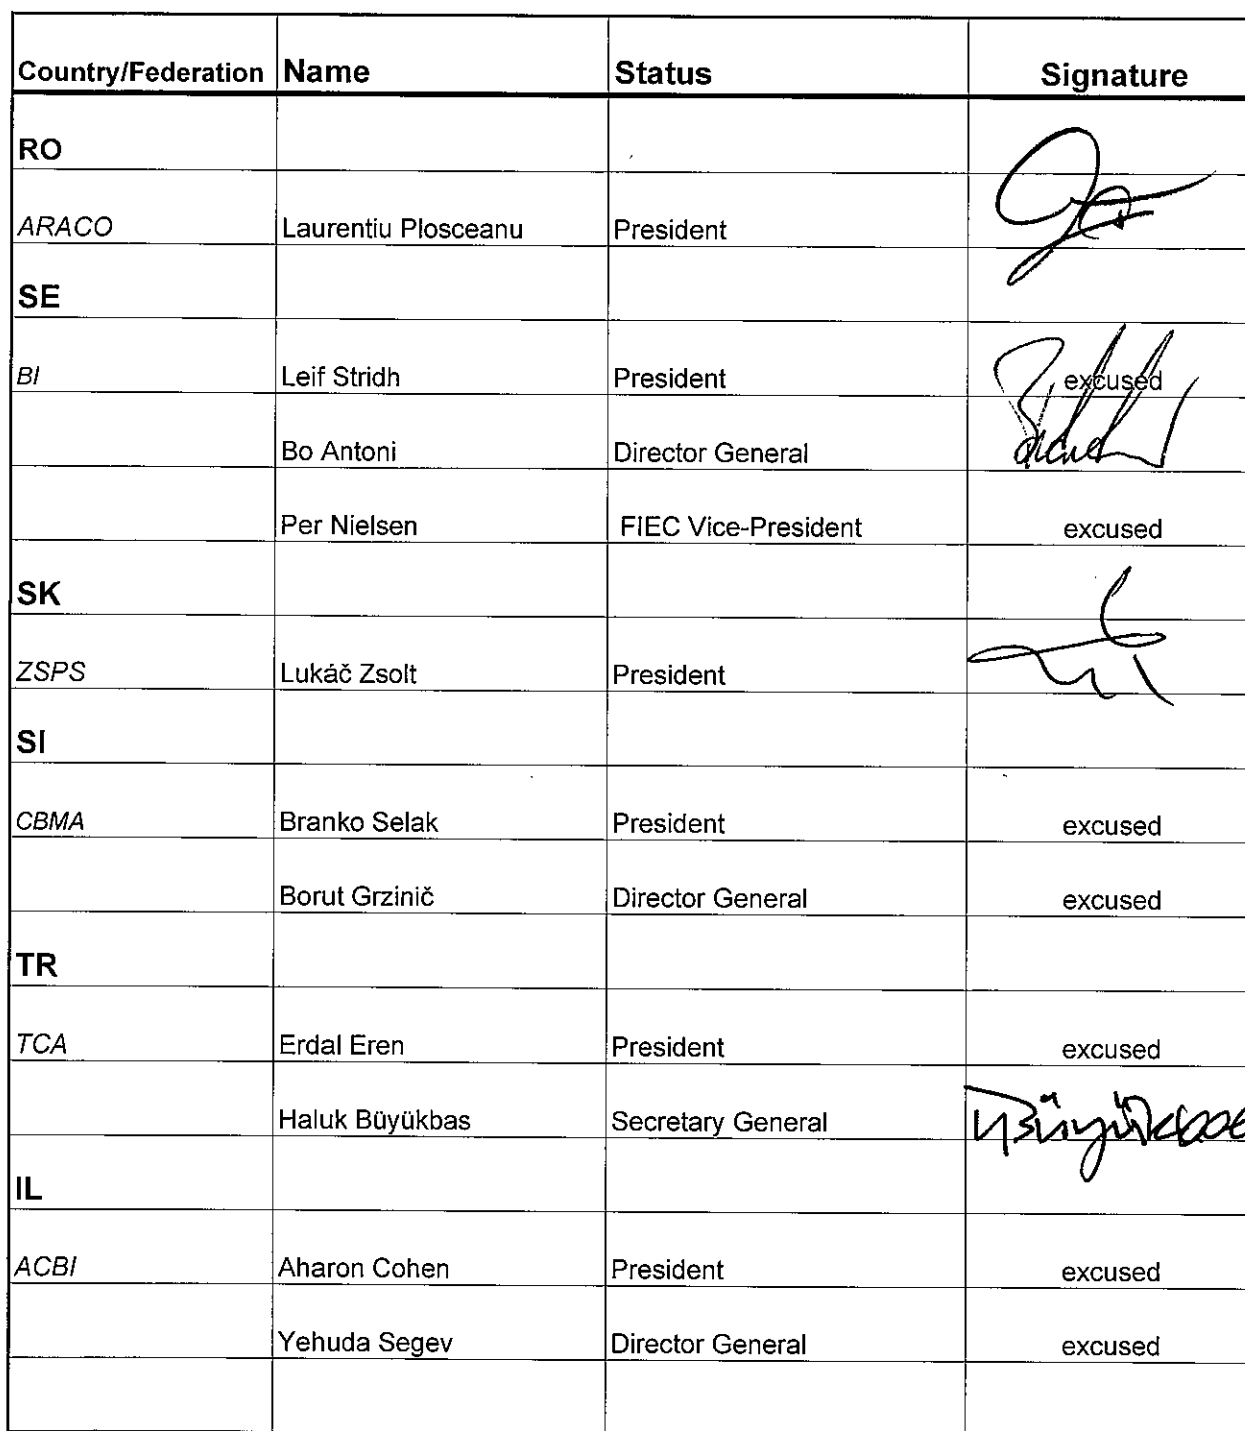 Country/Federation Name Status Signature
RO
ARACO Laurentiu Plosceanu President
SE
BI Leif Stridh President excused
Bo Antoni Director General
Per Nielsen FIEC Vice-President excused
SK
ZSPS Lukáč Zsolt President
SI
CBMA Branko Selak President excused
Borut Grzinič Director General excused
TR
TCA Erdal Eren President excused
Haluk Büyükbas Secretary General
IL
ACBI Aharon Cohen President excused
Yehuda Segev Director General excused